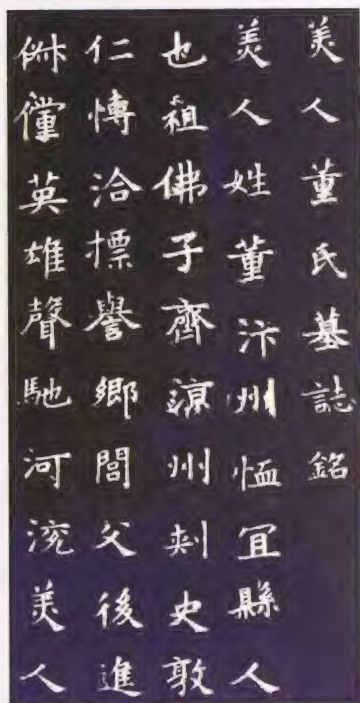 美人董氏墓誌銘
美人姓董汴州恤宜縣人
也祖佛子齊涼州刾史敦
仁愽洽摽譽鄉閭父後進
俶儻英雄聲馳河渷美人